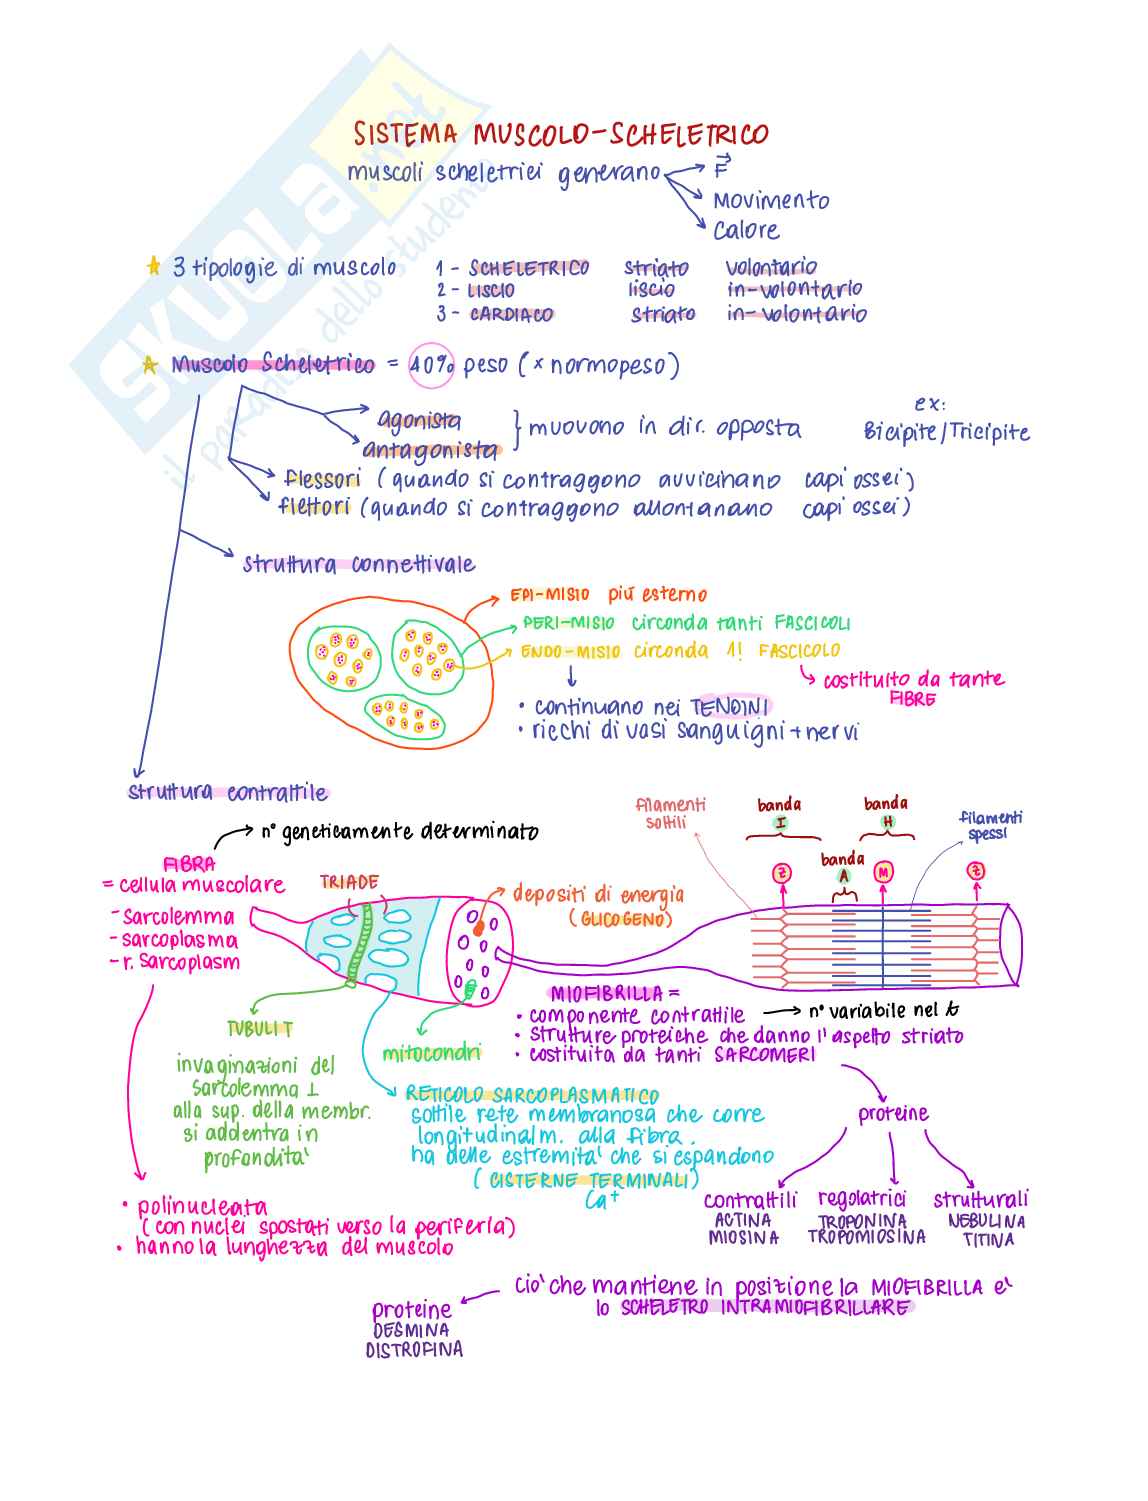 SISTEMA MUSCOLO-SCHELETRICO
muscoli scheletrici generano
F
Movimento
Calore
3 tipologie di muscolo
1 - SCHELETRICO striato volontario
2 - LISCIO liscio in-volontario
3 - CARDIACO striato in-volontario
Muscolo Scheletrico = 40% peso (x normopeso)
agonista
antagonista
} muovono in dir. opposta
ex:
Bicipite/Tricipite
flessori (quando si contraggono avvicinano capi ossei)
flettori (quando si contraggono allontanano capi ossei)
struttura connettivale
EPI-MISIO più esterno
PERI-MISIO circonda tanti FASCICOLI
ENDO-MISIO circonda 1! FASCICOLO
costituito da tante
FIBRE
• continuano nei TENDINI
• ricchi di vasi sanguigni + nervi
struttura contrattile
n° geneticamente determinato
FIBRA
= cellula muscolare
- sarcolemma
- sarcoplasma
- r. sarcoplasm
TRIADE
depositi di energia
(GLICOGENO)
filamenti
sottili
banda
I
banda
H
filamenti
spessi
banda
A
Z
M
Z
TUBULI T
invaginazioni del
sarcolemma ⊥
alla sup. della membr.
si addentra in
profondità
mitocondri
MIOFIBRILLA =
• componente contrattile
n° variabile nel t
• strutture proteiche che danno l'aspetto striato
• costituita da tanti SARCOMERI
RETICOLO SARCOPLASMATICO
sottile rete membranosa che corre
longitudinalm. alla fibra.
ha delle estremità che si espandono
(CISTERNE TERMINALI)
Ca+
proteine
contrattili
ACTINA
MIOSINA
regolatrici
TROPONINA
TROPOMIOSINA
strutturali
NEBULINA
TITINA
• polinucleata
(con nuclei spostati verso la periferia)
• hanno la lunghezza del muscolo
ciò che mantiene in posizione la MIOFIBRILLA è
lo SCHELETRO INTRAMIOFIBRILLARE
proteine
DESMINA
DISTROFINA
SKUOLA.net
il paradiso dello studente